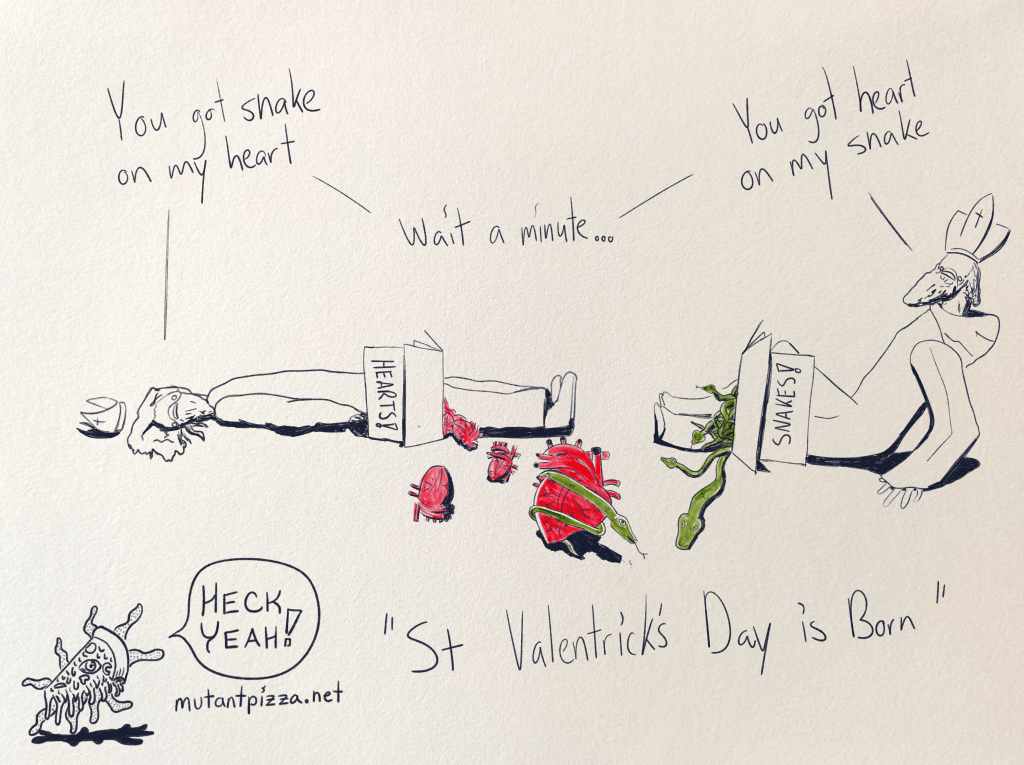 You got snake
on my heart
You got heart
on my snake
Wait a minute...
HEARTS!
SNAKES!
HECK
YEAH!
mutantpizza.net
"St Valentrick's Day is Born"